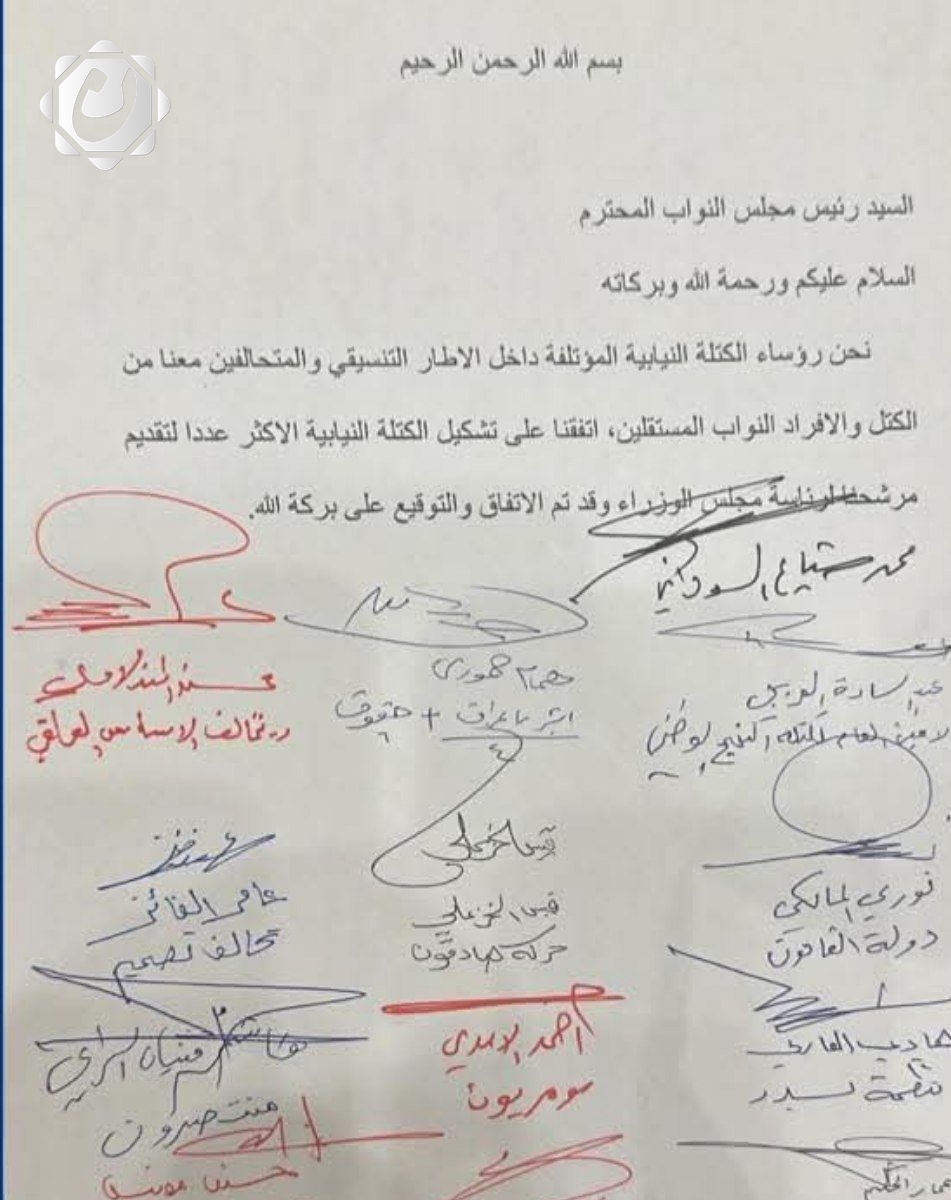 بسم الله الرحمن الرحيم
السيد رئيس مجلس النواب المحترم
السلام عليكم ورحمة الله وبركاته
نحن رؤساء الكتلة النيابية المؤتلفة داخل الاطار التنسيقي والمتحالفين معنا من
الكتل والافراد النواب المستقلين، اتفقنا على تشكيل الكتلة النيابية الاكثر عددا لتقديم
مرشحنا لرئاسة مجلس الوزراء وقد تم الاتفاق والتوقيع على بركة الله.
محمد شياع السوداني
همام حمودي
ابشر يا عراق + حقوق
محسن المندلاوي
تحالف الاساس العراقي
نوري المالكي
دولة القانون
قيس الخزعلي
قيس الخزعلي
حركة صادقون
عامر الفائز
تحالف تصميم
هادي العامري
منظمة بدر
احمد الاسدي
سومريون
السراي
حسين مونس
عمار الحكيم